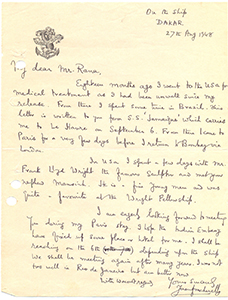 On the Ship
DAKAR
27th Aug 1948
My dear Mr Rana,
Eighteen months ago I went to the USA for
medical treatment as I had been unwell since my
release. From there I spent some time in Brazil. This
letter is written to you from S.S. 'Jamaique' which carries
me to Le Havre on September 6. From there I come to
Paris for a very few days before I return to Bombay via
London.
In USA I spent a few days with Mr
Frank Lloyd Wright the famous and met your
nephew Mansinh. It is a fine young man and was
quite a favourite at the Wright Fellowship.
I am eagerly looking forward to meeting
you during my Paris stay. I hope the Indian Embassy
has fixed up some place or hotel for me. I shall be
reaching on the 6th depending upon the ship
We shall be meeting again after many years. I was not
too well in Rio de Janeiro but am better now.
With kind regards,
Yours Sincerely